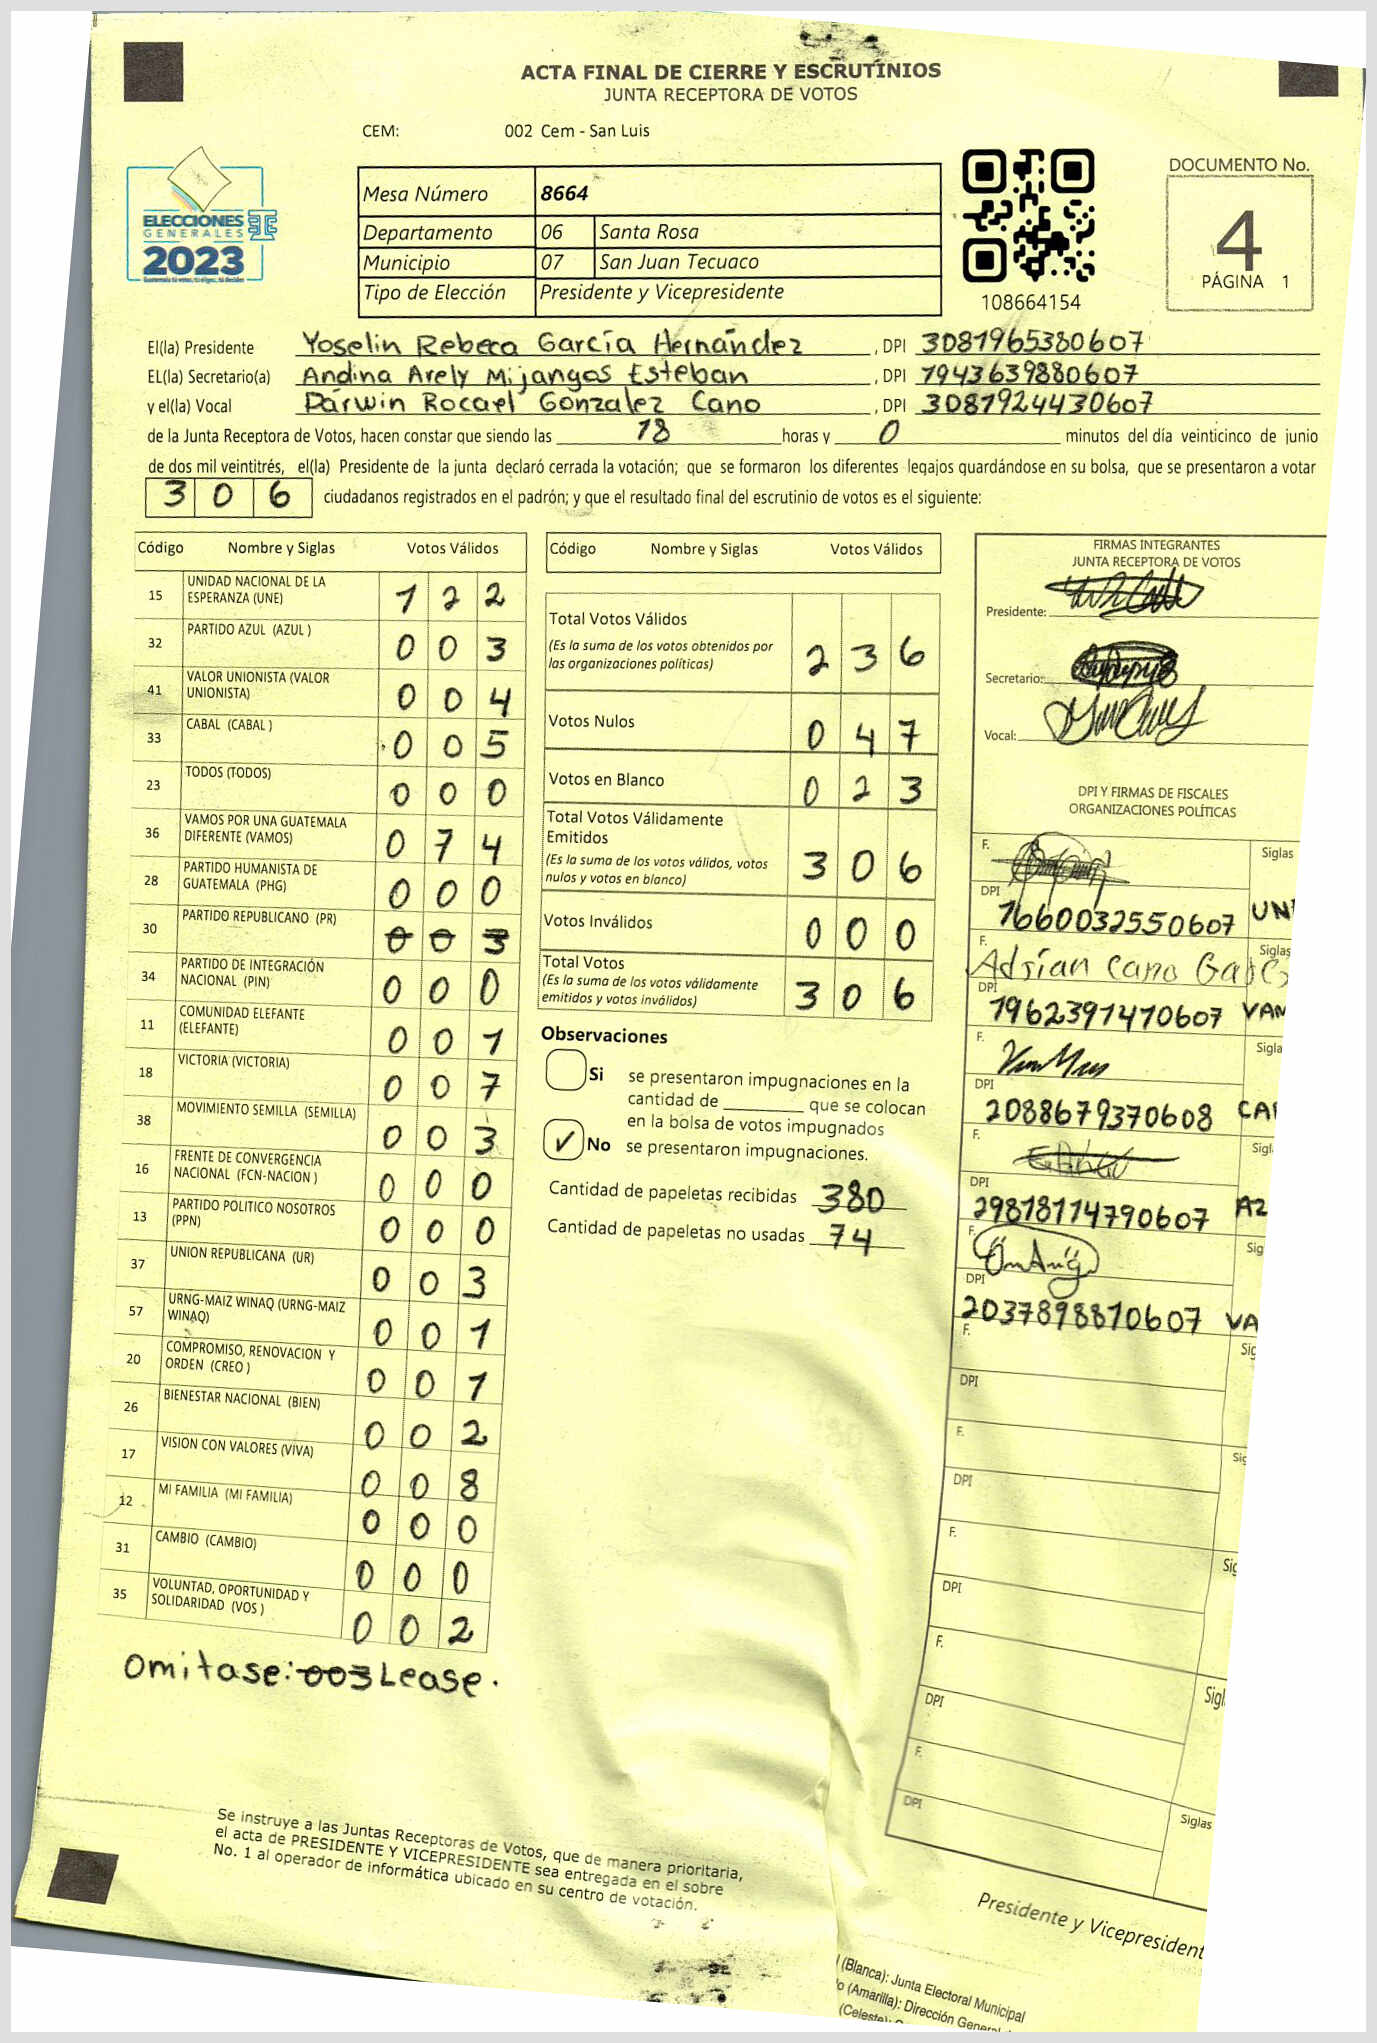 ACTA FINAL DE CIERRE Y ESCRUTINIOS
JUNTA RECEPTORA DE VOTOS
CEM: 002 Cem - San Luis
ELECCIONES
GENERALES
2023
Mesa Número 8664
Departamento 06 Santa Rosa
Municipio 07 San Juan Tecuaco
Tipo de Elección Presidente y Vicepresidente
108664154
DOCUMENTO No.
4
PÁGINA 1
El(la) Presidente Yoselin Rebeca García Hernández, DPI 3081965380607
EL(la) Secretario(a) Andina Arely Mijangos Esteban, DPI 1943639880607
y el(la) Vocal Darwin Rocael Gonzalez Cano, DPI 3081924430607
de la Junta Receptora de Votos, hacen constar que siendo las 18 horas y 0 minutos del día veinticinco de junio
de dos mil veintitrés, el(la) Presidente de la junta declaró cerrada la votación; que se formaron los diferentes legajos guardándose en su bolsa, que se presentaron a votar
306 ciudadanos registrados en el padrón; y que el resultado final del escrutinio de votos es el siguiente:
Código Nombre y Siglas Votos Válidos
15 UNIDAD NACIONAL DE LA ESPERANZA (UNE) 122
32 PARTIDO AZUL (AZUL ) 003
41 VALOR UNIONISTA (VALOR UNIONISTA) 004
33 CABAL (CABAL ) 005
23 TODOS (TODOS) 000
36 VAMOS POR UNA GUATEMALA DIFERENTE (VAMOS) 074
28 PARTIDO HUMANISTA DE GUATEMALA (PHG) 000
30 PARTIDO REPUBLICANO (PR) 003
34 PARTIDO DE INTEGRACIÓN NACIONAL (PIN) 000
11 COMUNIDAD ELEFANTE (ELEFANTE) 001
18 VICTORIA (VICTORIA) 007
38 MOVIMIENTO SEMILLA (SEMILLA) 003
16 FRENTE DE CONVERGENCIA NACIONAL (FCN-NACION ) 000
13 PARTIDO POLITICO NOSOTROS (PPN) 000
37 UNION REPUBLICANA (UR) 003
57 URNG-MAIZ WINAQ (URNG-MAIZ WINAQ) 001
20 COMPROMISO, RENOVACION Y ORDEN (CREO ) 001
26 BIENESTAR NACIONAL (BIEN) 002
17 VISION CON VALORES (VIVA) 008
12 MI FAMILIA (MI FAMILIA) 000
31 CAMBIO (CAMBIO) 000
35 VOLUNTAD, OPORTUNIDAD Y SOLIDARIDAD (VOS ) 002
Omitase: 003 Lease.
Código Nombre y Siglas Votos Válidos
Total Votos Válidos 236
(Es la suma de los votos obtenidos por
las organizaciones políticas)
Votos Nulos 047
Votos en Blanco 023
Total Votos Válidamente
Emitidos 306
(Es la suma de los votos válidos, votos
nulos y votos en blanco)
Votos Inválidos 000
Total Votos 306
(Es la suma de los votos válidamente
emitidos y votos inválidos)
Observaciones
Si se presentaron impugnaciones en la
cantidad de ________ que se colocan
en la bolsa de votos impugnados
✓ No se presentaron impugnaciones.
Cantidad de papeletas recibidas 380
Cantidad de papeletas no usadas 74
FIRMAS INTEGRANTES
JUNTA RECEPTORA DE VOTOS
Presidente:
Secretario:
Vocal:
DPI Y FIRMAS DE FISCALES
ORGANIZACIONES POLÍTICAS
F. Siglas
DPI 1660032550607 UN
F. Adrian Cano Siglas
DPI 1962391470607 VAM
F. Sigla
DPI 2088679370608 CA
F. Sigl
DPI 29818114790607 AZ
F. Sig
DPI 2037898810607 VA
F. Sig
DPI
F. Sig
DPI
F. Sig
DPI
F. Sigl
DPI
F. Siglas
DPI
Se instruye a las Juntas Receptoras de Votos, que de manera prioritaria,
el acta de PRESIDENTE Y VICEPRESIDENTE sea entregada en el sobre
No. 1 al operador de informática ubicado en su centro de votación.
Presidente y Vicepresident
(Blanca): Junta Electoral Municipal
(Amarilla): Dirección General
(Celeste):